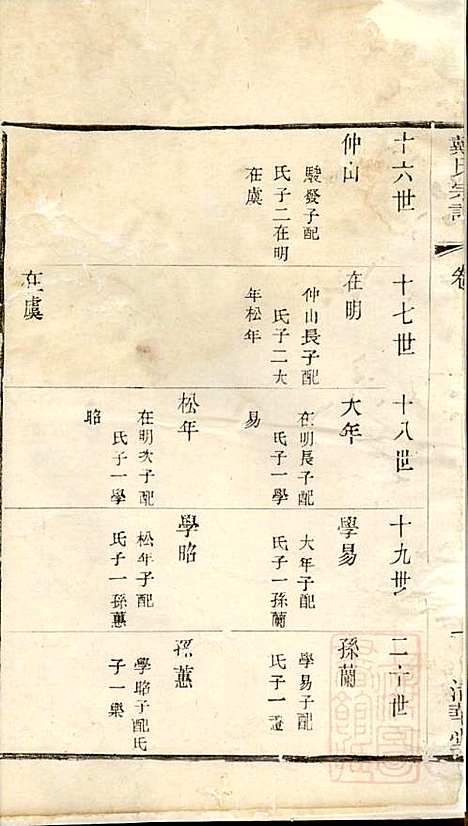 戴氏宗譜
卷
清華堂
十六世
仲山
駿發子配
氏子二在明
在虞
十七世
在明
仲山長子配
氏子二大
年松年
在虞
十八世
大年
在明長子配
氏子一學
易
松年
在明次子配
氏子一學
昭
十九世
學易
大年子配
氏子一孫蘭
學昭
松年子配
氏子一孫蕙
二十世
孫蘭
學易子配
氏子一
孫蕙
學昭子配氏
子一樂